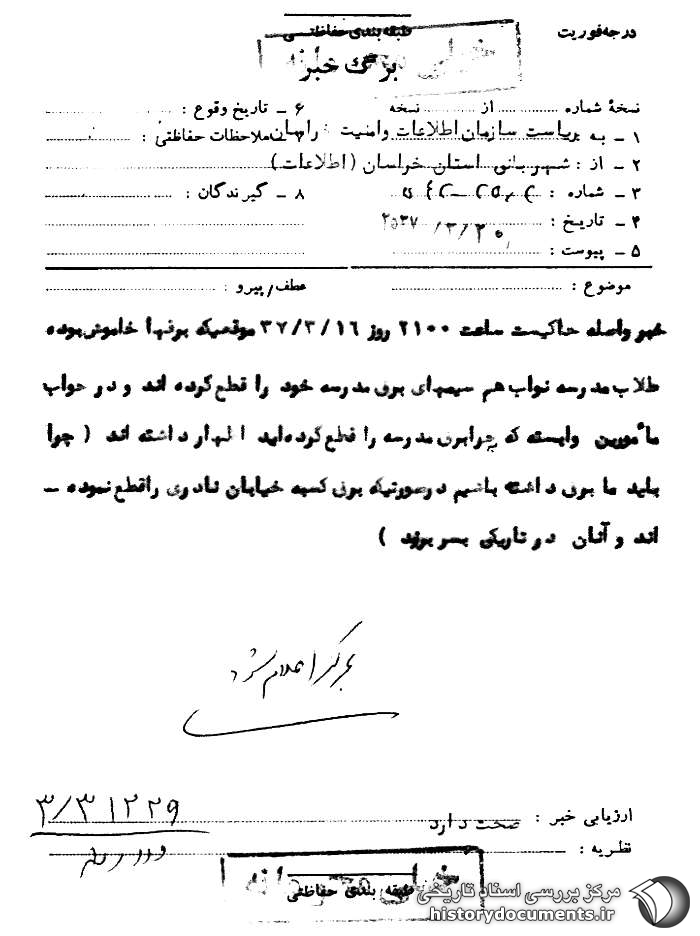 درجه فوریت
طبقه بندی حفاظتی
برگ خبر
نسخهٔ شماره ............ از ............ نسخه
۱ ـ به : ریاست سازمان اطلاعات و امنیت خراسان
۲ ـ از : شهربانی استان خراسان (اطلاعات)
۳ ـ شماره :
۴ ـ تاریخ : ۲۵۳۷/۳/۲۰
۵ ـ پیوست :
۶ ـ تاریخ وقوع :
۷ ـ ملاحظات حفاظتی :
۸ ـ گیرندگان :
موضوع :
عطف/پیرو :
خبر واصله حاکیست ساعت ۲۱۰۰ روز ۳۷/۳/۱۶ موقعیکه برقها خاموش بوده
طلاب مدرسه نواب هم سیمهای برق مدرسه خود را قطع کرده اند و در جواب
مأمورین وابسته که چرا برق مدرسه را قطع کرده اید اظهار داشته اند ( چرا
باید ما برق داشته باشیم درصورتیکه برق کسبه خیابان نادری را قطع نموده ـ
اند و آنان در تاریکی بسر برند )
بمرکز اعلام شود
ارزیابی خبر : صحت دارد
نظریه :
۳/۳۱۲۲۹
طبقه بندی حفاظتی
خیلی محرمانه
مرکز بررسی اسناد تاریخی
historydocuments.ir